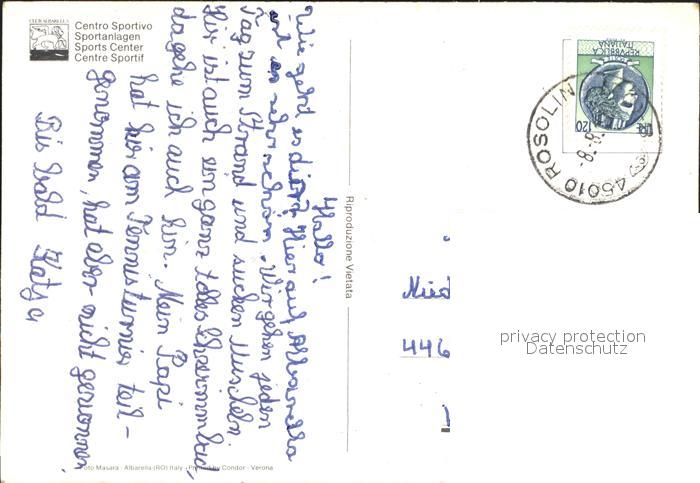 CLUB ALBARELLA
Centro Sportivo
Sportanlagen
Sports Center
Centre Sportif
Hallo!
Wie geht es dir? Hier auf Albarella
ist es sehr schön. Wir gehen jeden
Tag zum Strand und suchen Muscheln.
Hier ist auch ein ganz tolles Schwimmbad,
da gehe ich auch hin. Mein Papi
hat hier am Tennisturnier teil-
genommen, hat aber nicht gewonnen.
Bis bald Katja
Riproduzione Vietata
REPVBBLICA
ITALIANA
LIRE 120
45010 ROSOLIN
-8.-8.
446
privacy protection
Datenschutz
Foto Masarà - Albarella (RO) Italy - Printed by Condor - Verona